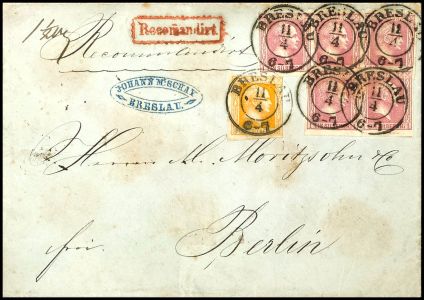 Recomandirt
Recommandirt
JOHANN M. SCHAY
BRESLAU.
BRESLAU
11
4
6-7
BRESLAU
11
4
6-7
BRESLAU
11
4
6-7
BRESLAU
11
4
6-7
BRESLAU
11
4
6-7
BRESLAU
11
4
6-7
Herren M. Moritzsohn & C
frei.
Berlin